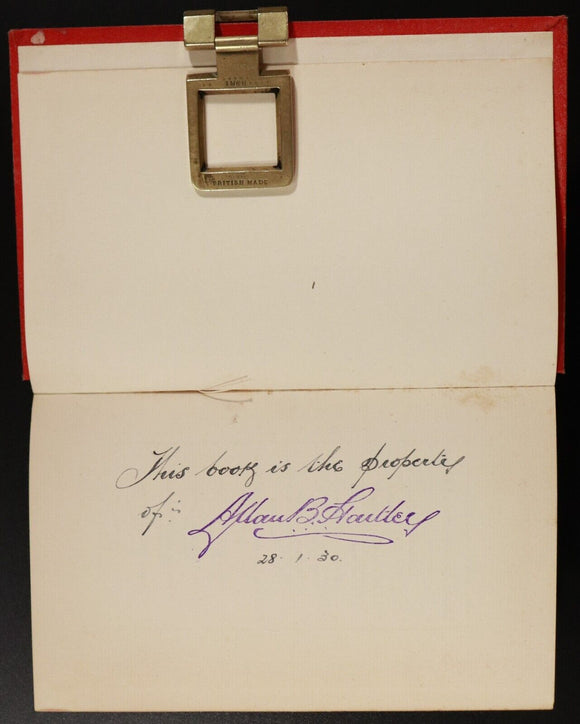 INCH
BRITISH MADE
This book is the property
of:-
Allan B. Hartley
28 · 1 · 30.